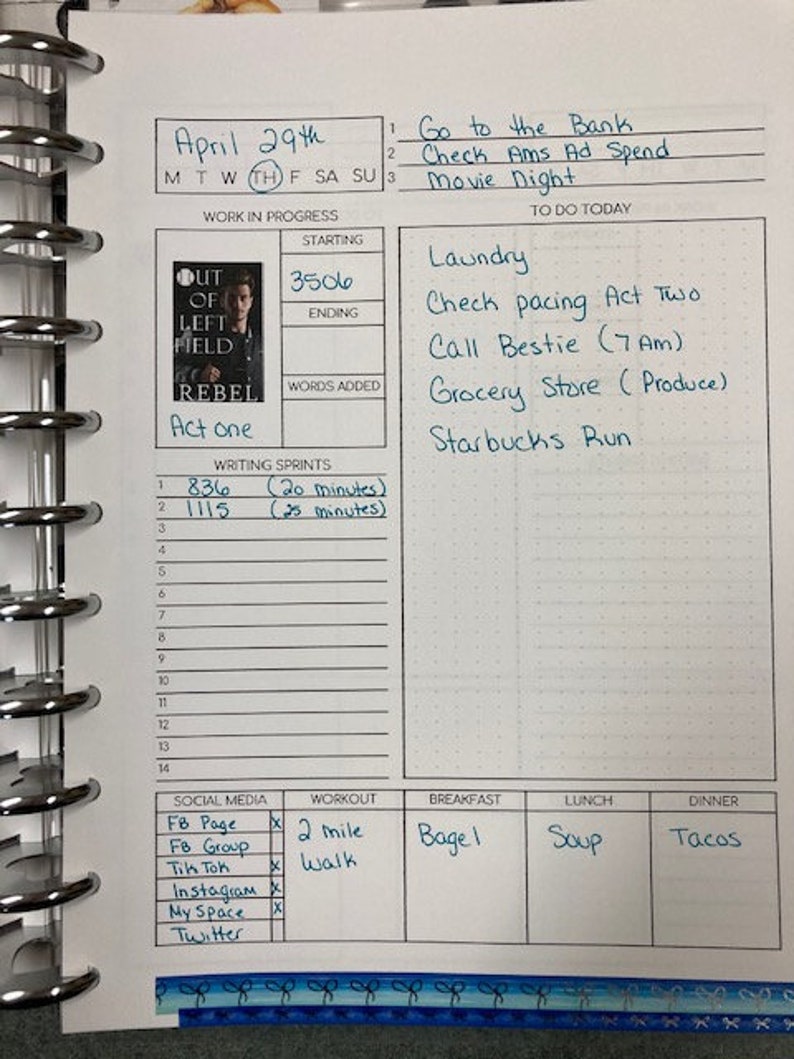 April 29th
M T W TH F SA SU
1 Go to the Bank
2 Check Ams Ad Spend
3 Movie Night
WORK IN PROGRESS
OUT
OF
LEFT
FIELD
REBEL
Act One
STARTING
3506
ENDING
WORDS ADDED
WRITING SPRINTS
1 836 (20 minutes)
2 1115 (25 minutes)
3
4
5
6
7
8
9
10
11
12
13
14
TO DO TODAY
Laundry
Check pacing Act Two
Call Bestie (7 Am)
Grocery Store (Produce)
Starbucks Run
SOCIAL MEDIA
FB Page X
FB Group
TikTok X
Instagram X
MySpace X
Twitter
WORKOUT
2 mile
Walk
BREAKFAST
Bagel
LUNCH
Soup
DINNER
Tacos